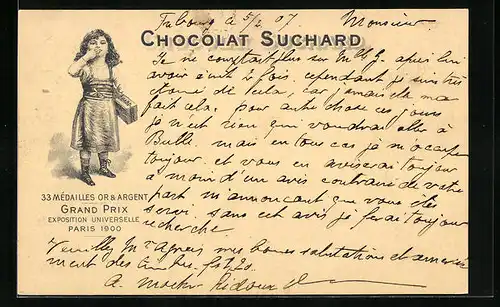 Fribourg à 5/2 07. Monsieur.
CHOCOLAT SUCHARD
Je ne comptait plus sur M. G. après lui
avoir écrit 2 fois. cependant je suis très
étonné de cela, car jamais elle m'a
fait cela, pour autre chose ces jours
je n'est rien qui voudrai aller à
Bulle. mais en tous cas je m'ocupe
toujour. et vous en aviserai toujour
a moin d'un avis contraire de votre
part m'annoncant que vous êtes
servi. sans cet avis je ferai toujour
recherche.
33 MÉDAILLES OR & ARGENT
GRAND PRIX
EXPOSITION UNIVERSELLE
PARIS 1900
Veuillez Mr agréer mes bonnes salutations et
ment des timbres
A.